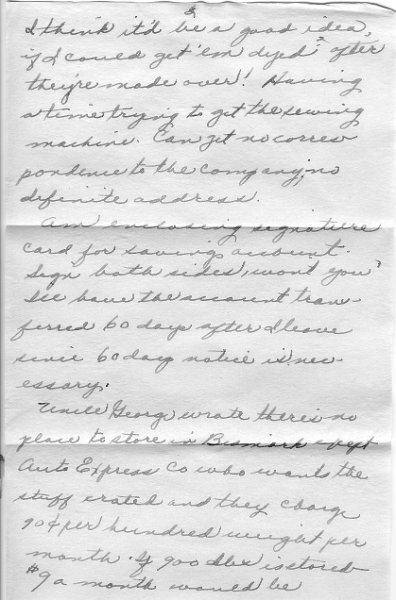 3
I think it'd be a good idea,
if I could get 'em dyed? after
they're made over! Having
a time trying to get the sewing
machine. Can get no corres-
pondence to the company, no
definite address.
Am enclosing signature
card for savings account.
Sign both sides, wont you?
I'll have the account tran-
ferred 60 days after I leave
since 60 day notice is nec-
essary.
Uncle George wrote there's no
place to store in Bismark exept
Auto Express Co who wants the
stuff crated and they charge
90¢ per hundred weight per
month. If 900 lbs is stored
$9 a month would be